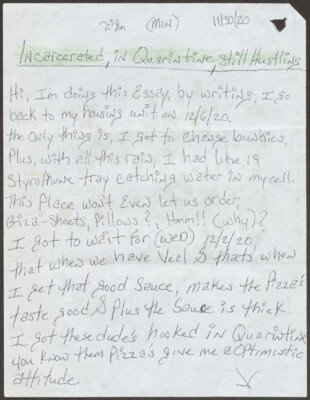 7:38pm (MON) 11/30/20
Incarcerated, in Quarintine, Still Hustling
Hi, I'm doing this Essay, by writing, I go
back to my housing unit on 12/6/20.
the only thing is, I got to change bunkies,
Plus, with all this rain, I had like 19
Styrothone tray catching water in my cell.
This Place won't Even let us order,
Giza-Sheets, Pillows?, Hmm!! (Why)?
I got to wait for (WED) 12/2/20,
that when we have Veel & thats when
I get that good Sauce, makes the Pizza's
taste good & Plus the Sauce is thick
I got these dude's hooked in Quarintine
you know them Pizza's give me a Optimistic
attitude.